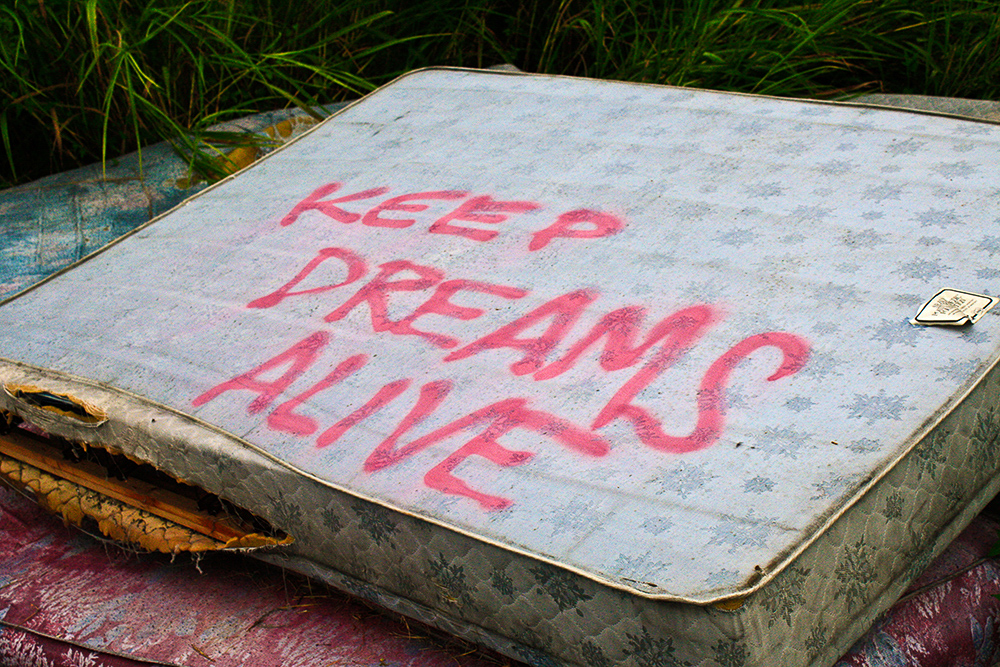 KEEP
DREAMS
ALIVE